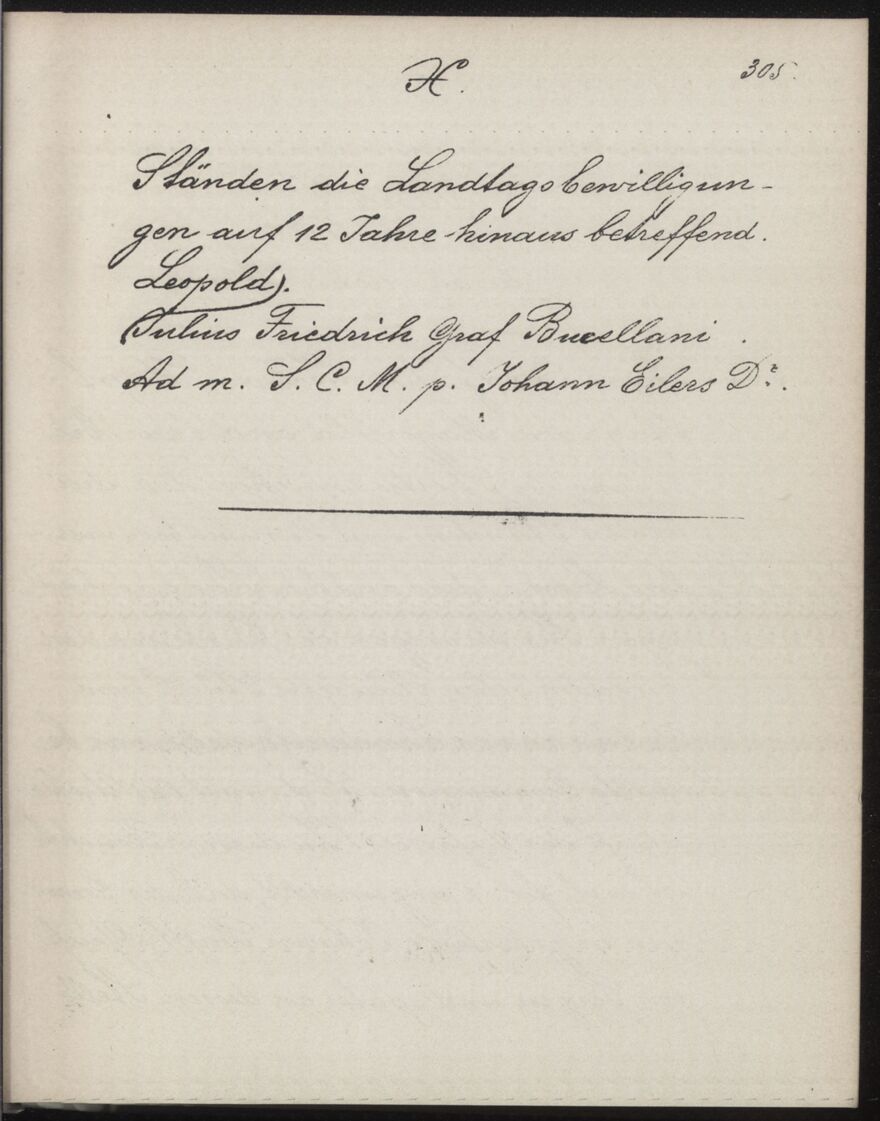 H. 305.
Ständen die Landtagsbewilligun-
gen auf 12 Jahre hinaus betreffend.
Leopold).
(Julius Friedrich Graf Bucellani.
Ad m. S. C. M. p. Johann Eilers Dr.